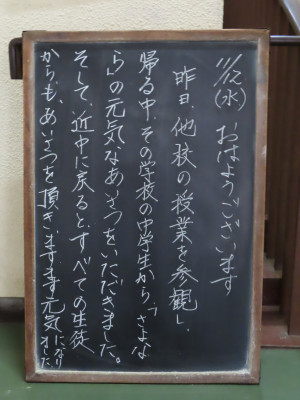 11/12(水) おはようございます
昨日、他校の授業を参観し、
帰る中、その学校の中学生から、「さよな
ら」の元気なあいさつをいただきました。
そして、近中に戻ると、すべての生徒
からも、あいさつを頂き、ますます元気になりました